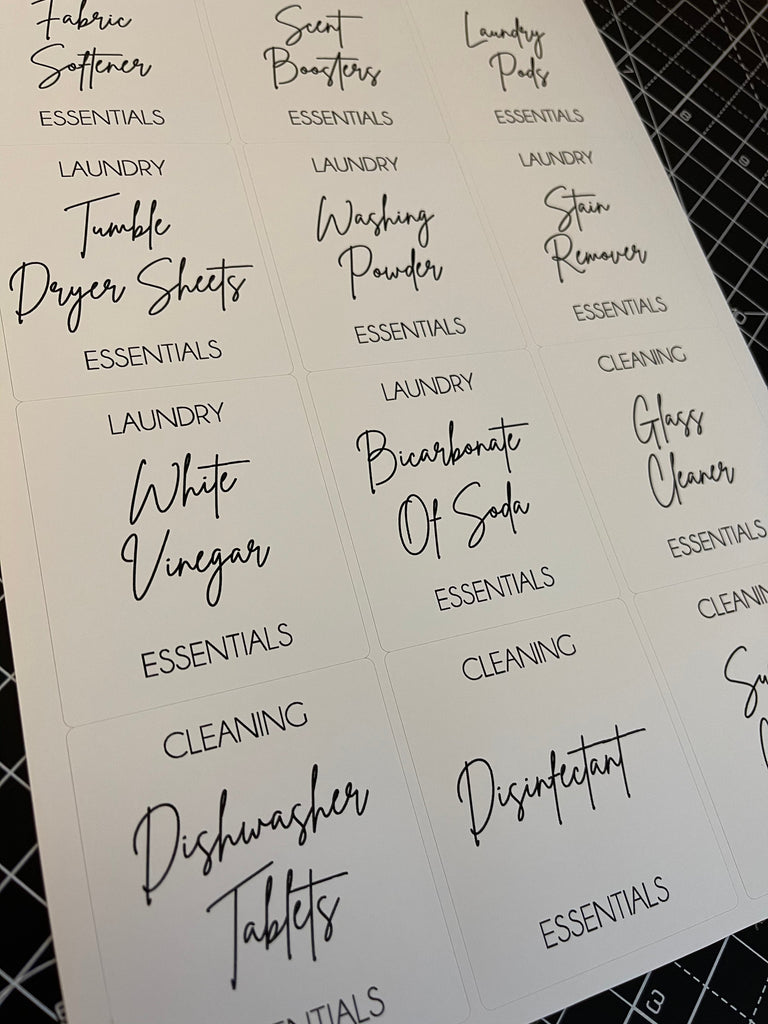 Fabric
Softener
ESSENTIALS
Scent
Boosters
ESSENTIALS
Laundry
Pods
ESSENTIALS
LAUNDRY
Tumble
Dryer Sheets
ESSENTIALS
LAUNDRY
Washing
Powder
ESSENTIALS
LAUNDRY
Stain
Remover
ESSENTIALS
LAUNDRY
White
Vinegar
ESSENTIALS
LAUNDRY
Bicarbonate
Of Soda
ESSENTIALS
CLEANING
Glass
Cleaner
ESSENTIALS
CLEANING
Dishwasher
Tablets
ENTIALS
CLEANING
Disinfectant
ESSENTIALS
CLEANIN
Su
3